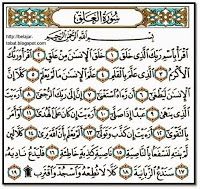 سورة العلق
http://belajar-
tobat.blogspot.com
بسم الله الرحمن الرحيم
اقرأ باسم ربك الذي خلق ١ خلق الإنسن من علق ٢ اقرأ وربك
الأكرم ٣ الذي علم بالقلم ٤ علم الإنسن ما لم يعلم ٥ كلا إن
الإنسن ليطغى ٦ أن رءاه استغنى ٧ إن إلى ربك الرجعى ٨ أرءيت
الذي ينهى ٩ عبدا إذا صلى ١٠ أرءيت إن كان على الهدى ١١ أو أمر
بالتقوى ١٢ أرءيت إن كذب وتولى ١٣ ألم يعلم بأن الله يرى ١٤ كلا لئن
لم ينته لنسفعا بالناصية ١٥ ناصية كذبة خاطئة ١٦ فليدع ناديه
١٧ سندع الزبانية ١٨ كلا لا تطعه واسجد واقترب ١٩